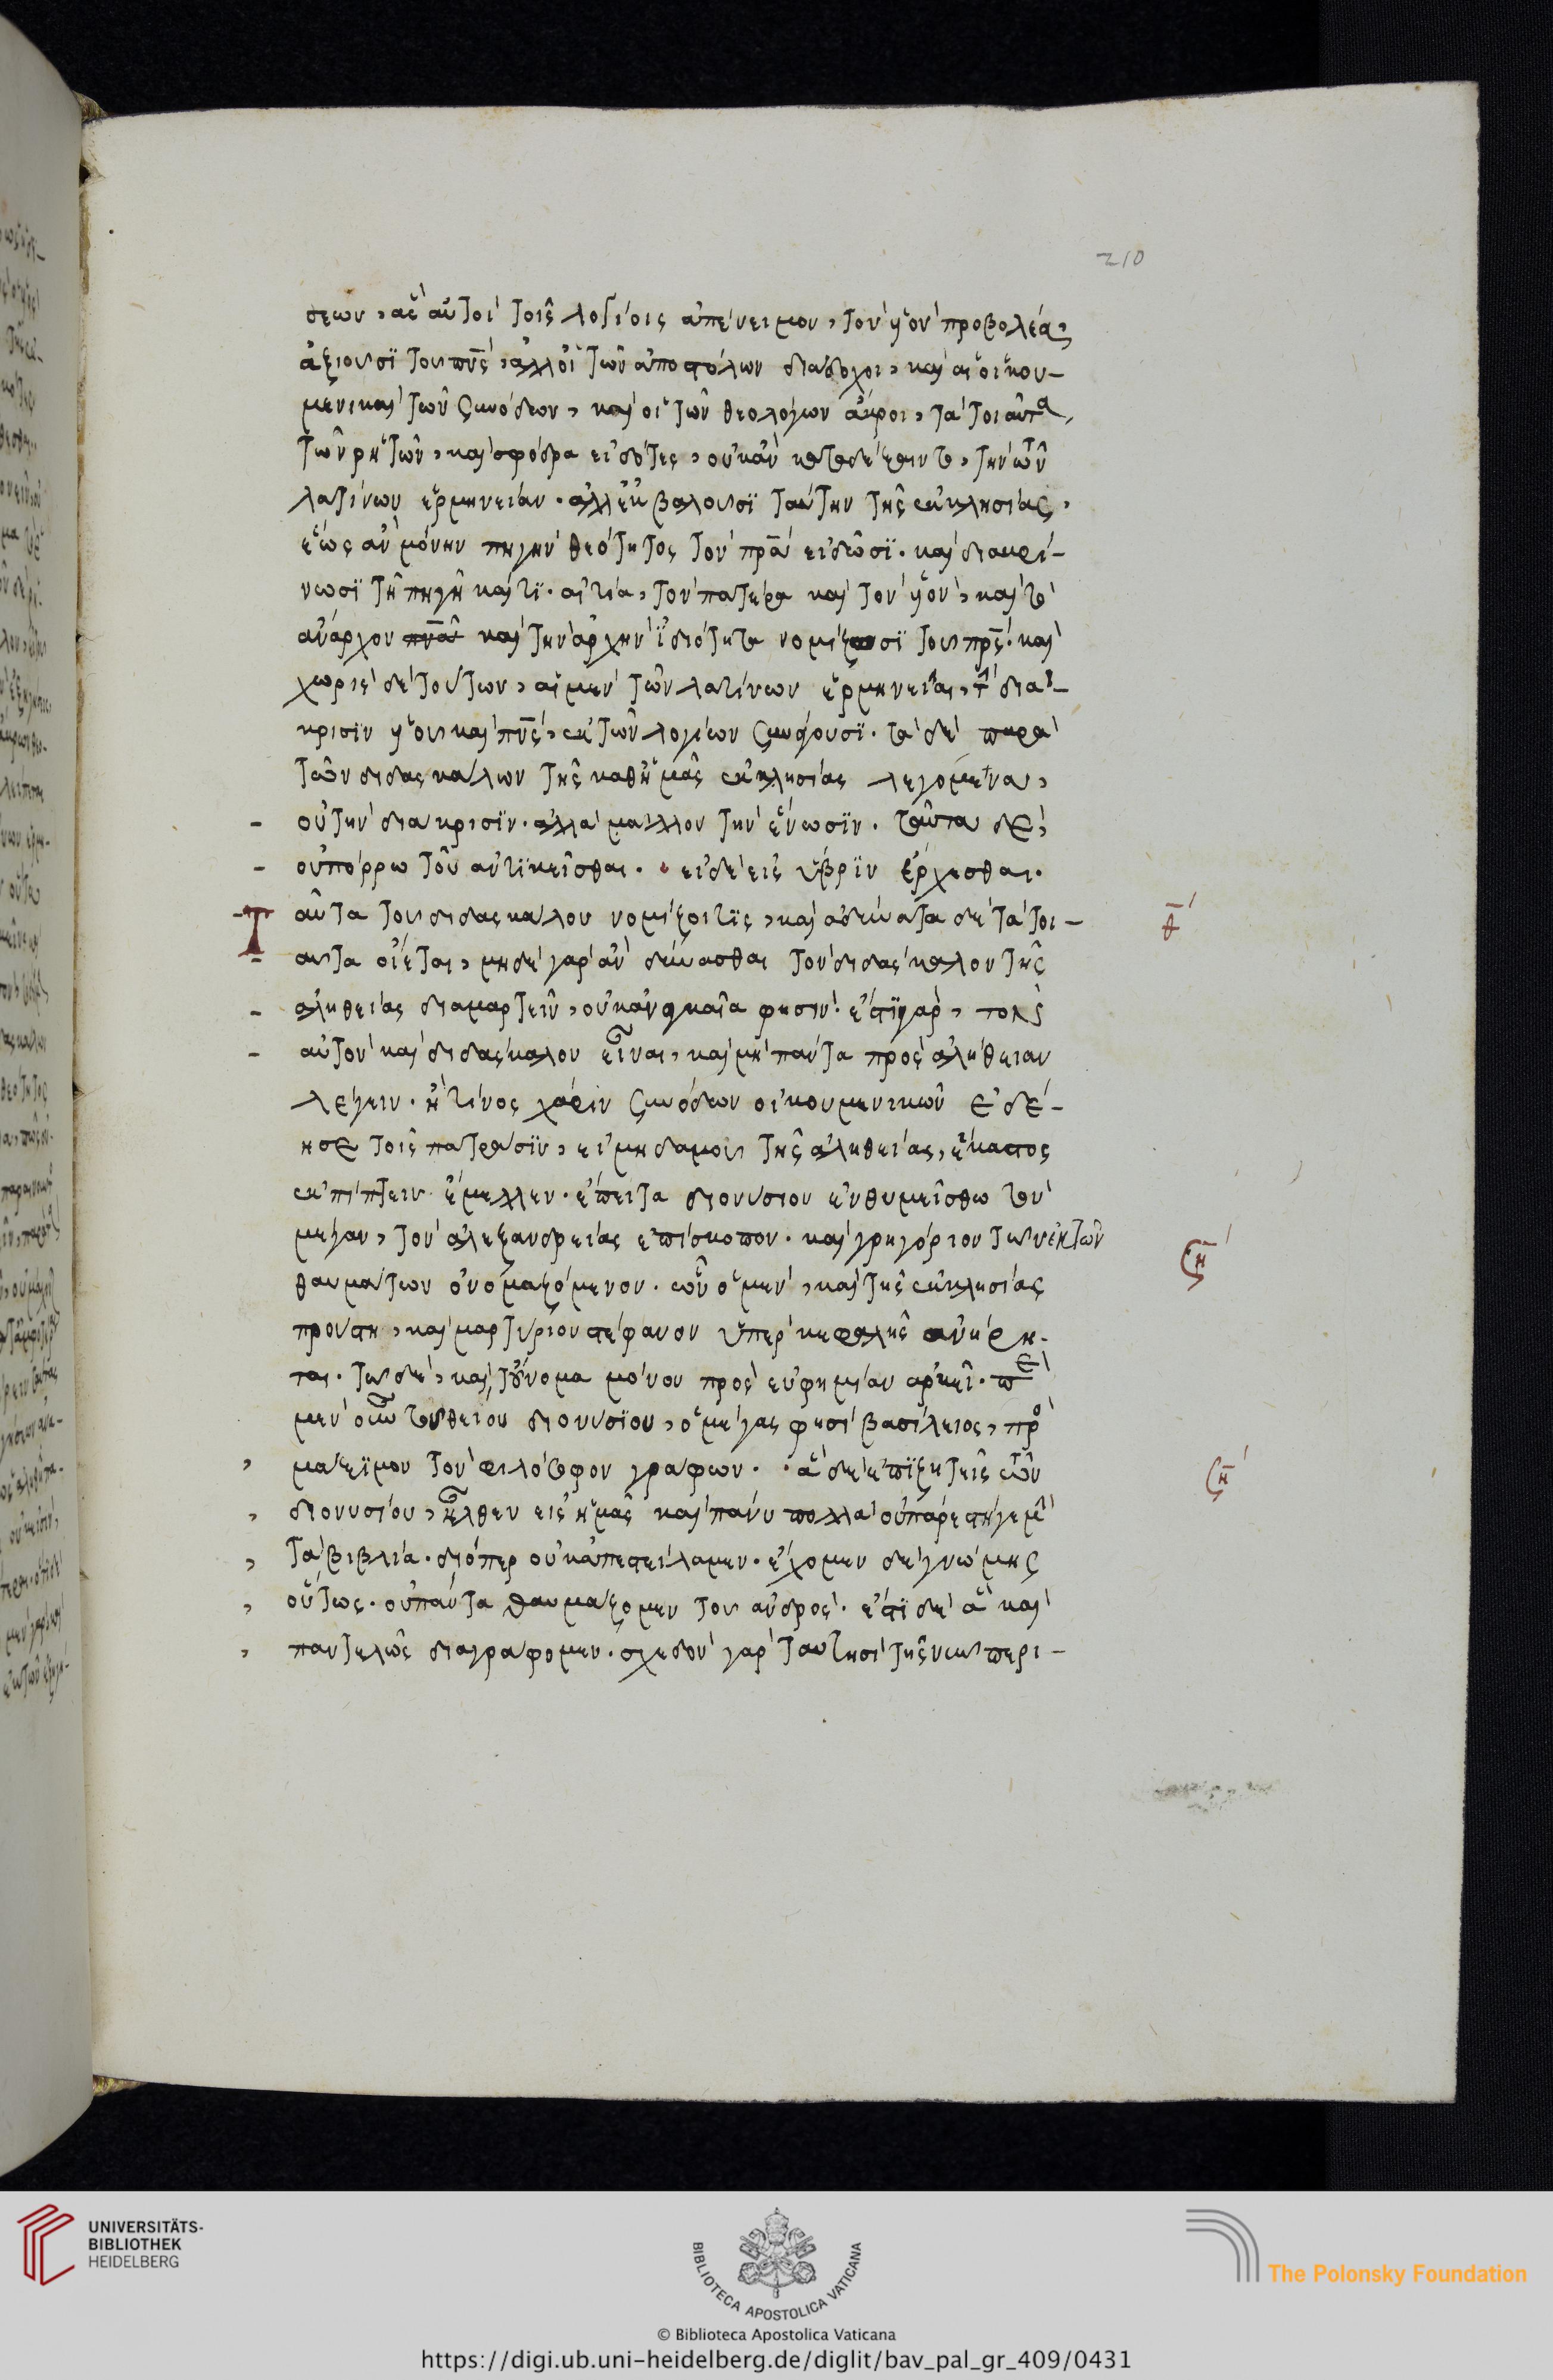 210
σεων, ἃς αὐτοὶ τοῖς λογίοις ἀπένειμον, τὸν υἱὸν προβολέα,
ἀξιοῦσι τοῦ πνς, ἀλλ' οἱ τῶν ἀποστόλων διάδοχοι, καὶ αἱ οἰκου-
μενικαὶ τῶν συνόδων, καὶ οἱ τῶν θεολόγων ἄκροι, τὰ τοιαῦτα
τῶν ῥητῶν, καὶ σφόδρα εἰδότες, οὐκ ἂν καταδέξαιντο, τὴν τῶν
λατίνων ἑρμηνείαν. ἀλλ' ἐκβαλοῦσι ταύτην τῆς ἐκκλησίας,
ἕως ἂν μόνην πηγὴν θεότητος τὸν πρα εἰδῶσι. καὶ διακρί-
νωσι τῇ πηγῇ καὶ τῇ αἰτίᾳ, τὸν πατέρα καὶ τὸν υἱὸν, καὶ τὸ
ἄναρχον καὶ τὴν ἀρχὴν ἰδιότητα νομίζωσι τοῦ πρς. καὶ
χωρὶς δὲ τούτων, αἱ μὲν τῶν λατίνων ἑρμηνεῖαι, τὴν διά-
κρισιν υἱοῦ καὶ πνς, ἐκ τῶν λογίων συνάγουσι. τὰ δὲ παρὰ
τῶν διδασκάλων τῆς καθ' ἡμᾶς ἐκκλησίας λεγόμενα,
οὐ τὴν διάκρισιν. ἀλλὰ μᾶλλον τὴν ἕνωσιν. ταῦτα δὲ,
οὐ πόρρω τοῦ ἀντικεῖσθαι. εἰ δὲ εἰς ὕβριν ἔρχεσθαι.
Ταῦτα τοῦ διδασκάλου νομίζοι τις, καὶ ἀδύνατα δὲ τὰ τοι-
αῦτα οἴεται, μηδὲ γὰρ ἂν δύνασθαι τὸν διδάσκαλον τῆς
ἀληθείας διαμαρτεῖν, οὐκ ἀναγκαῖα φησίν. ἔστι γὰρ,
αὐτὸν καὶ διδάσκαλον εἶναι, καὶ μὴ πάντα πρὸς ἀλήθειαν
λέγειν. ἢ τίνος χάριν συνόδων οἰκουμενικῶν ἐδέ-
ησε τοῖς πατράσιν, εἰ μηδαμοῦ τῆς ἀληθείας, ἕκαστος
ἐκπίπτειν ἔμελλεν. ἔπειτα διονύσιον ἐνθυμείσθω τὸν
μέγαν, τὸν ἀλεξανδρείας ἐπίσκοπον. καὶ γρηγόριον τὸν ἐκ τῶν
θαυμάτων ὀνομαζόμενον. ὧν ὁ μὲν, καὶ τῆς ἐκκλησίας
προύστη, καὶ μαρτυρίου στέφανον ὑπὲρ κεφαλῆς ἀνήρη-
ται. τῷ δὲ, καὶ τοὔνομα μόνον πρὸς εὐφημίαν ἀρκεῖ. περὶ
μὲν οὖν τοῦ θείου διονυσίου, ὁ μέγας φησὶ βασίλειος, πρὸς
μάξιμον τὸν φιλόσοφον γράφων. ἃ δὲ ἐπιζητεῖς τῶν
διονυσίου, ἦλθεν εἰς ἡμᾶς καὶ πάνυ πολλὰ οὐ πάρεστι γε μὴν
τὰ βιβλία. διόπερ οὐκ ἀπεστείλαμεν. ἔχομεν δὲ γνώμης
οὕτως. οὐ πάντα θαυμάζομεν τοῦ ἀνδρός. ἔστι δὲ ἃ καὶ
παντελῶς διαγράφομεν. σχεδὸν γὰρ ταυτησὶ τῆς νῦν περι-
UNIVERSITÄTS-
BIBLIOTHEK
HEIDELBERG
BIBLIOTECA APOSTOLICA VATICANA
The Polonsky Foundation
© Biblioteca Apostolica Vaticana
https://digi.ub.uni-heidelberg.de/diglit/bav_pal_gr_409/0431